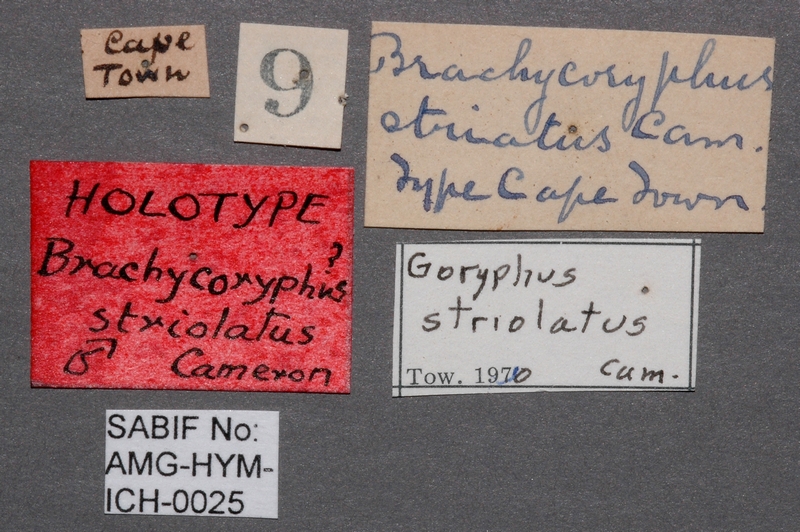 Cape
Town
9
Brachycoryphus
striatus Cam.
Type Cape Town.
HOLOTYPE
?
Brachycoryphus
striolatus
♂ Cameron
Goryphus
striolatus
Cam.
Tow. 1970
SABIF No:
AMG-HYM-
ICH-0025